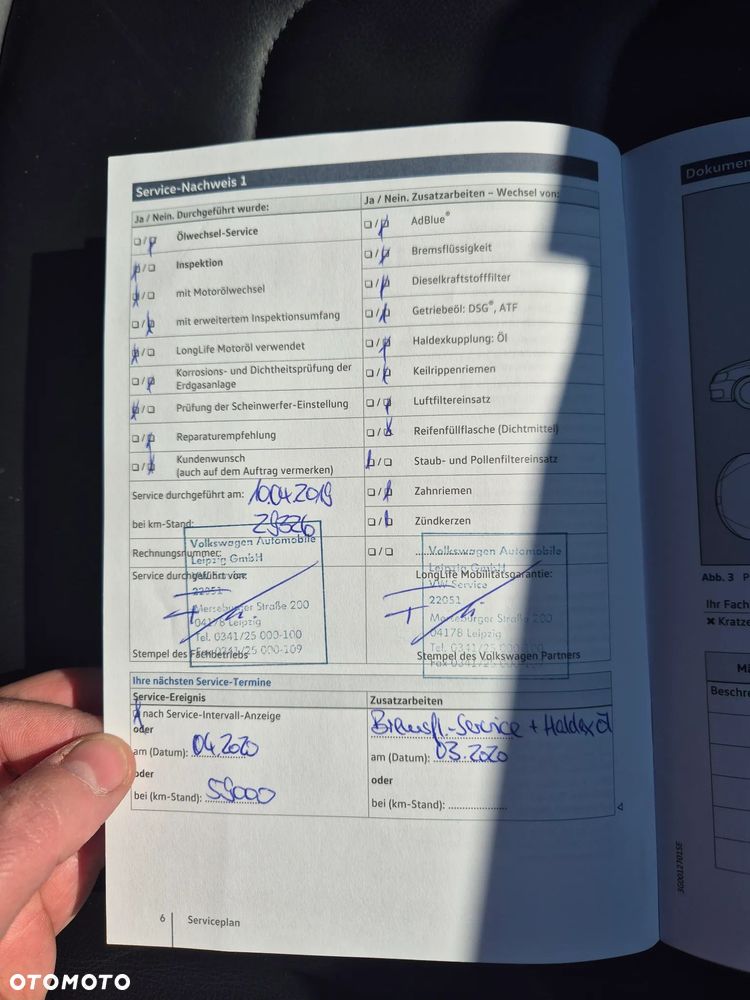 Service-Nachweis 1
Ja / Nein. Durchgeführt wurde:
Ölwechsel-Service
Inspektion
mit Motorölwechsel
mit erweitertem Inspektionsumfang
LongLife Motoröl verwendet
Korrosions- und Dichtheitsprüfung der
Erdgasanlage
Prüfung der Scheinwerfer-Einstellung
Reparaturempfehlung
Kundenwunsch
(auch auf dem Auftrag vermerken)
Service durchgeführt am: 10.04.2019
bei km-Stand: 29326
Rechnungsnummer:
Service durchgeführt von:
Volkswagen Automobile
Leipzig GmbH
22051
Merseburger Straße 200
04178 Leipzig
Tel. 0341/25 000-100
Fax 0341/25 000-109
Stempel des Fachbetriebs
Ja / Nein. Zusatzarbeiten – Wechsel von:
AdBlue®
Bremsflüssigkeit
Dieselkraftstofffilter
Getriebeöl: DSG®, ATF
Haldexkupplung: Öl
Keilrippenriemen
Luftfiltereinsatz
Reifenfüllflasche (Dichtmittel)
Staub- und Pollenfiltereinsatz
Zahnriemen
Zündkerzen
LongLife Mobilitätsgarantie:
Volkswagen Automobile
Leipzig GmbH
VW Service
22051
Merseburger Straße 200
04178 Leipzig
Tel. 0341/25 000-100
Stempel des Volkswagen Partners
Ihre nächsten Service-Termine
Service-Ereignis
nach Service-Intervall-Anzeige
oder
am (Datum): 04.2020
oder
bei (km-Stand): 59000
Zusatzarbeiten
Bremsfl.-Service + Haldex Öl
am (Datum): 03.2020
oder
bei (km-Stand):
6 Serviceplan
Dokumen
Abb. 3 P
Ihr Fach
✖ Kratze
Beschre
3G0012701SE
OTOMOTO